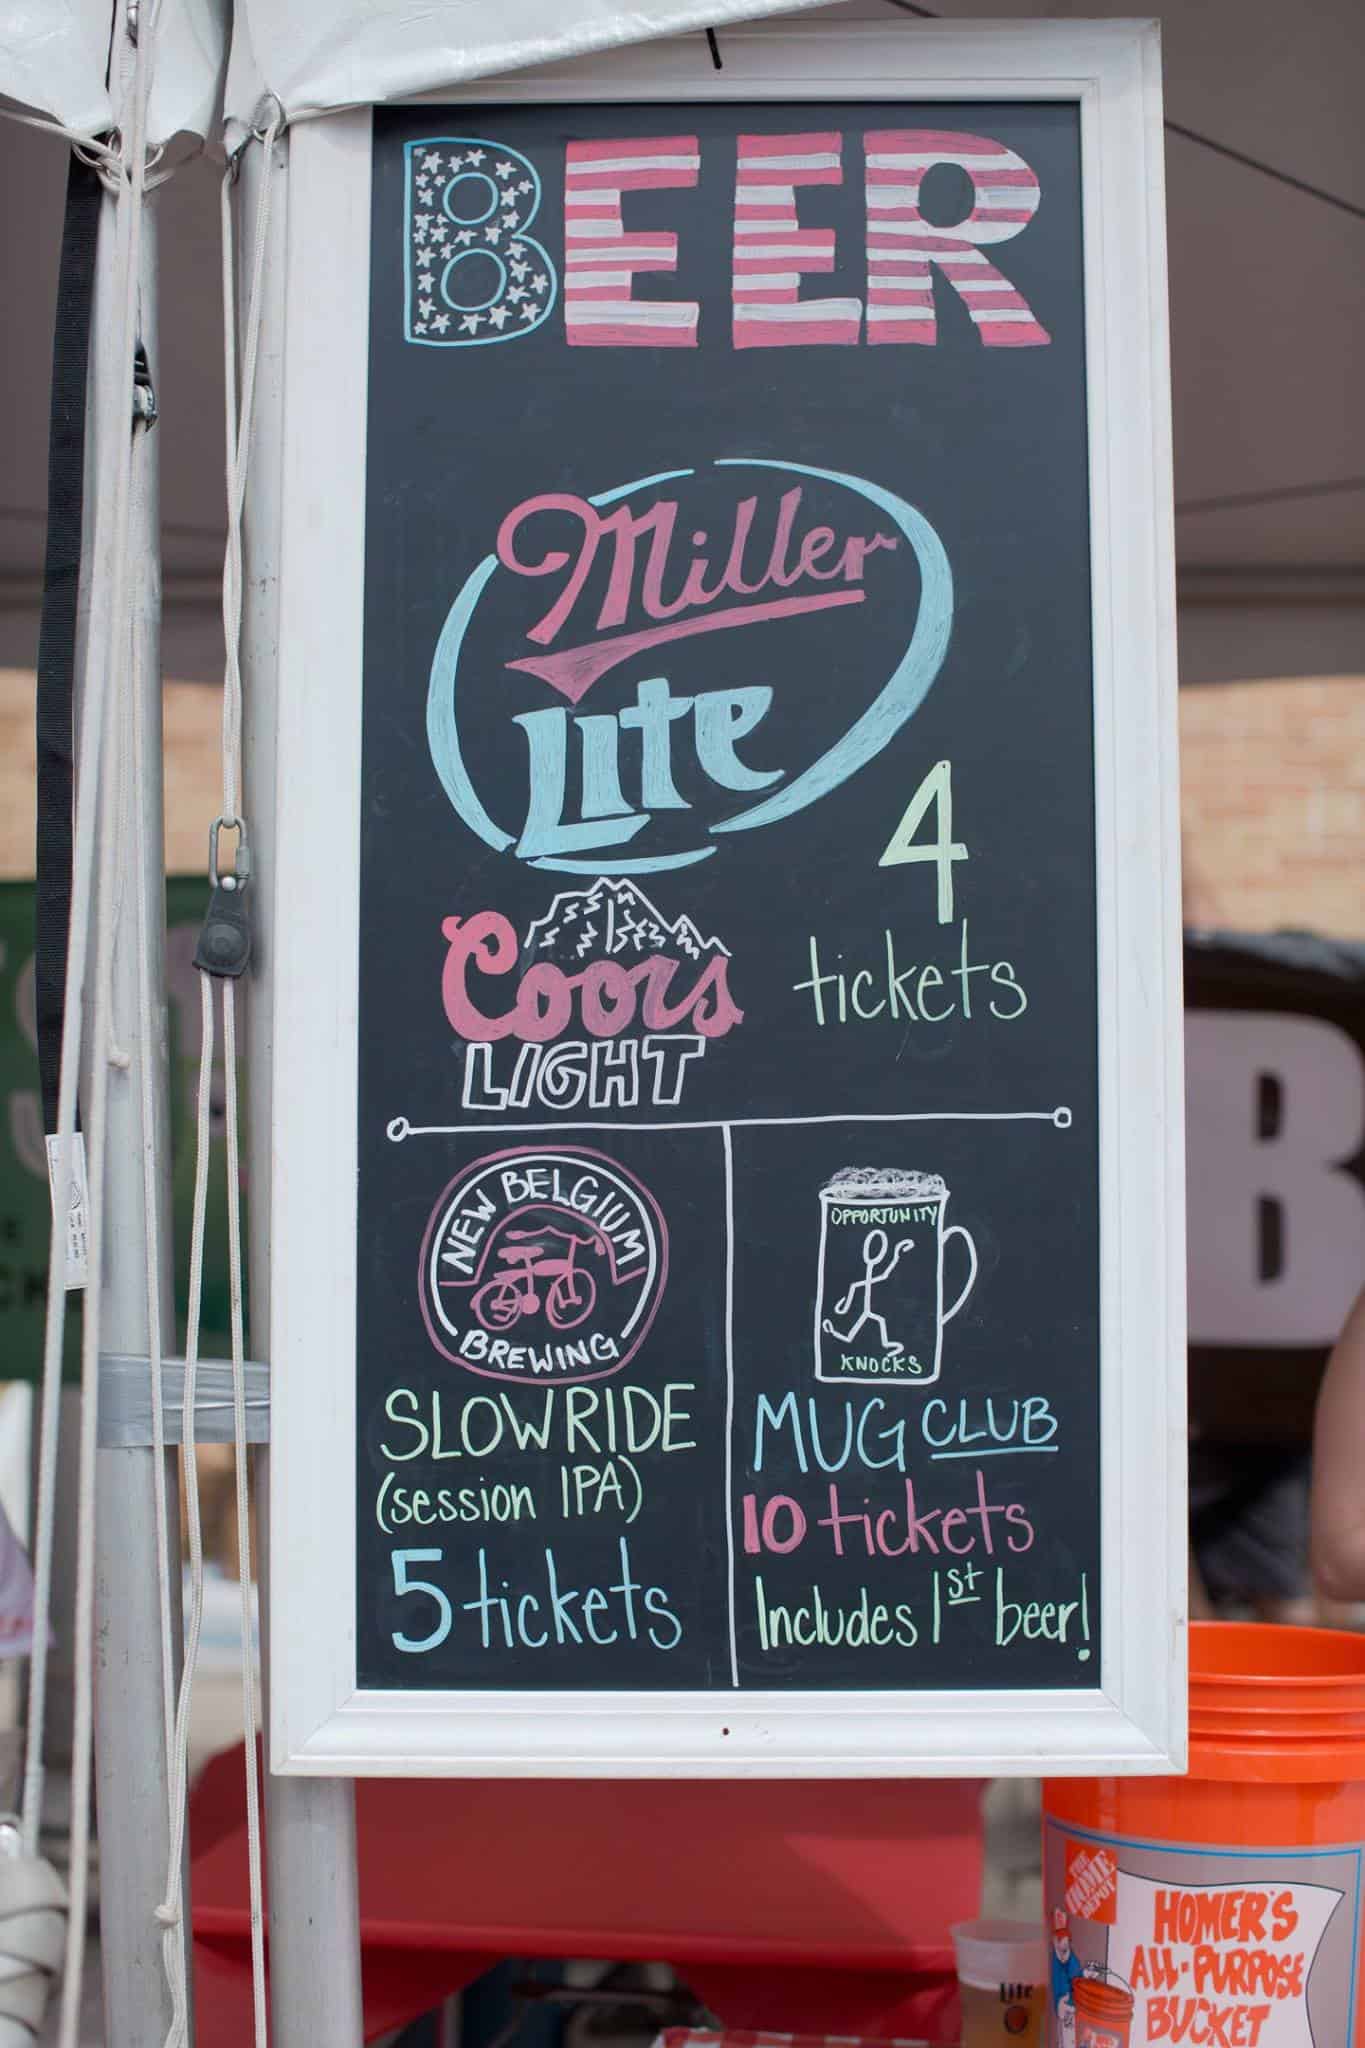 BEER
Miller
Lite
4
tickets
Coors
LIGHT
NEW BELGIUM
BREWING
SLOW RIDE
(session IPA)
5 tickets
OPPORTUNITY
KNOCKS
MUG CLUB
10 tickets
Includes 1st beer!
B
THE
HOME
DEPOT
HOMER'S
ALL-PURPOSE
BUCKET
Lite